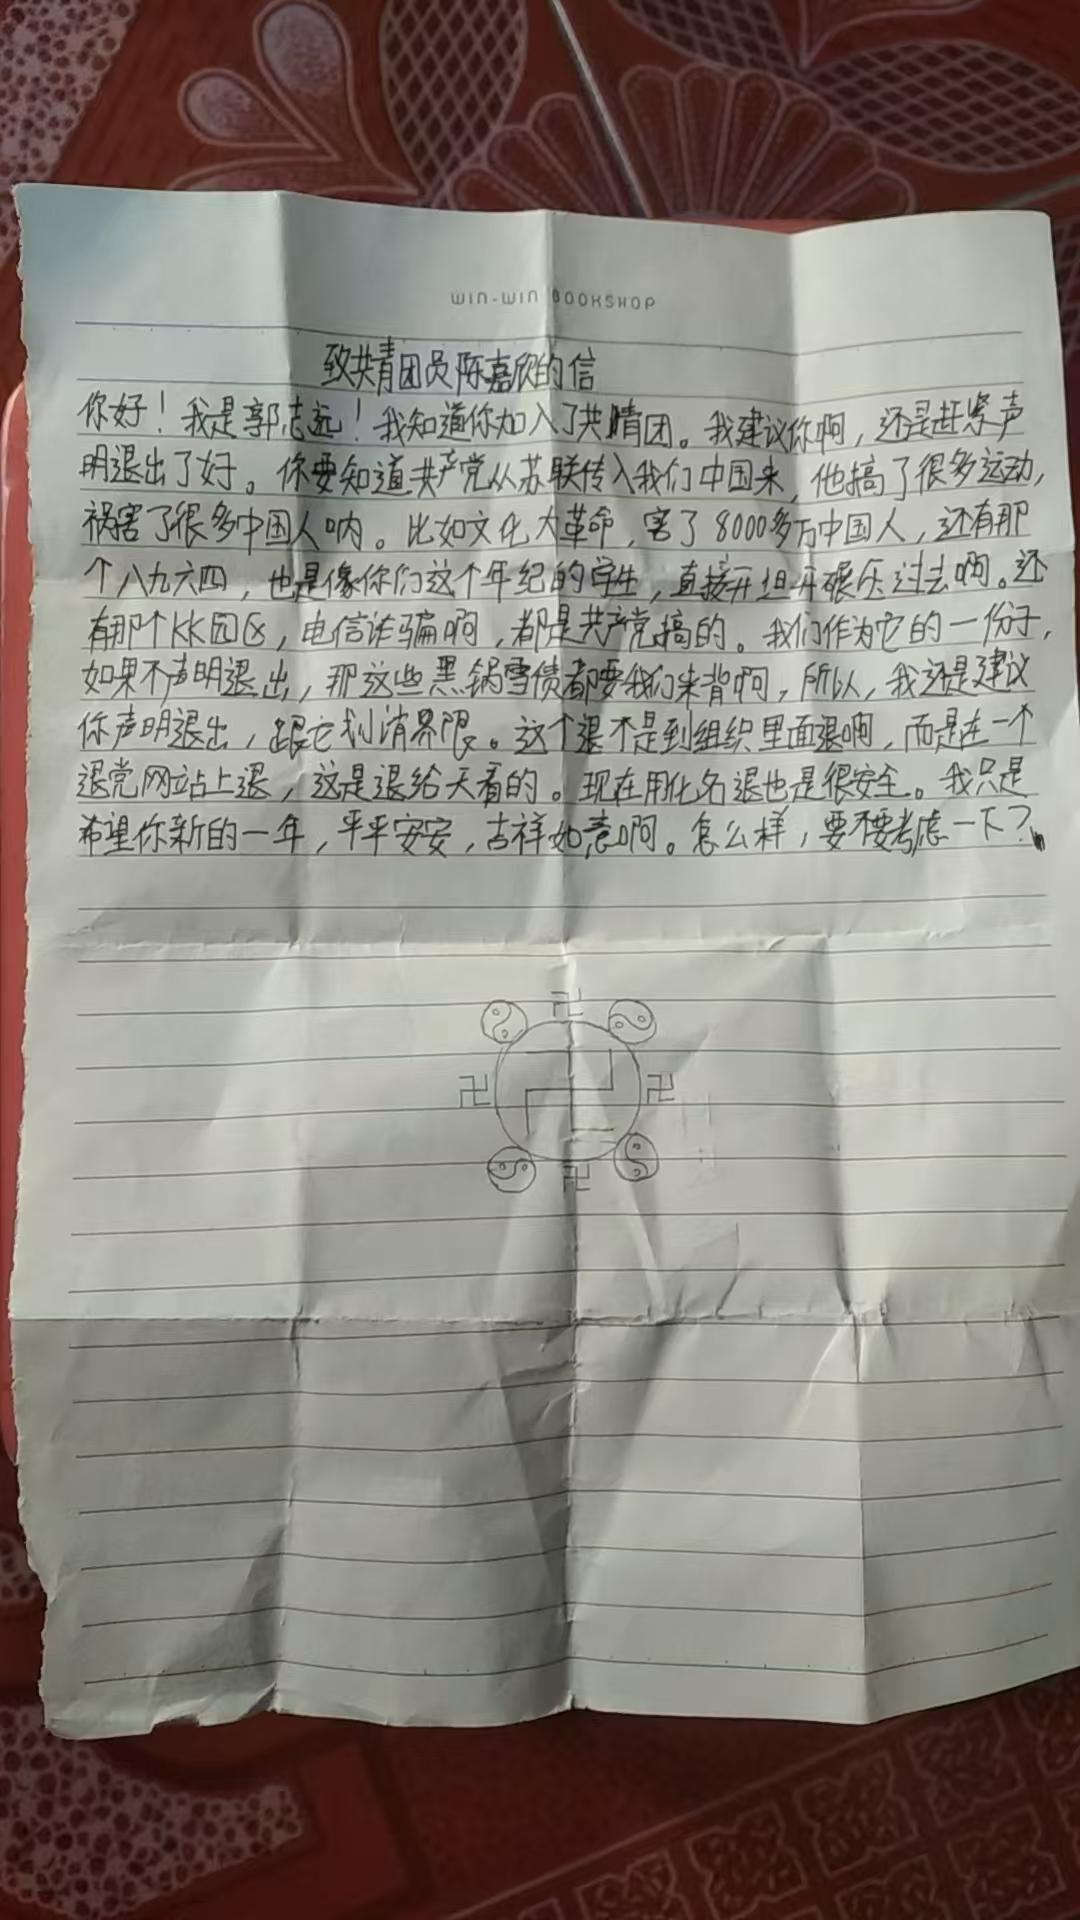 WIN-WIN BOOKSHOP
致共青团员陈嘉欣的信
你好！我是郭志远！我知道你加入了共睛团。我建议你啊，还是赶紧声
明退出了好。你要知道共产党从苏联传入我们中国来，他搞了很多运动，
祸害了很多中国人呐。比如文化大革命，害了8000多万中国人，还有那
个八九六四，也是像你们这个年纪的学生，直接开坦开碾压过去啊。还
有那个KK园区，电信诈骗啊，都是共产党搞的。我们作为它的一份子，
如果不声明退出，那这些黑锅雪债都要我们来背啊，所以，我还是建议
你声明退出，跟它划清界限。这个退不是到组织里面退啊，而是在一个
退党网站上退，这是退给天看的。现在用化名退也是很安全。我只是
希望你新的一年，平平安安，吉祥如意啊。怎么样，要不要考虑一下？
卍
卍 卍
卍